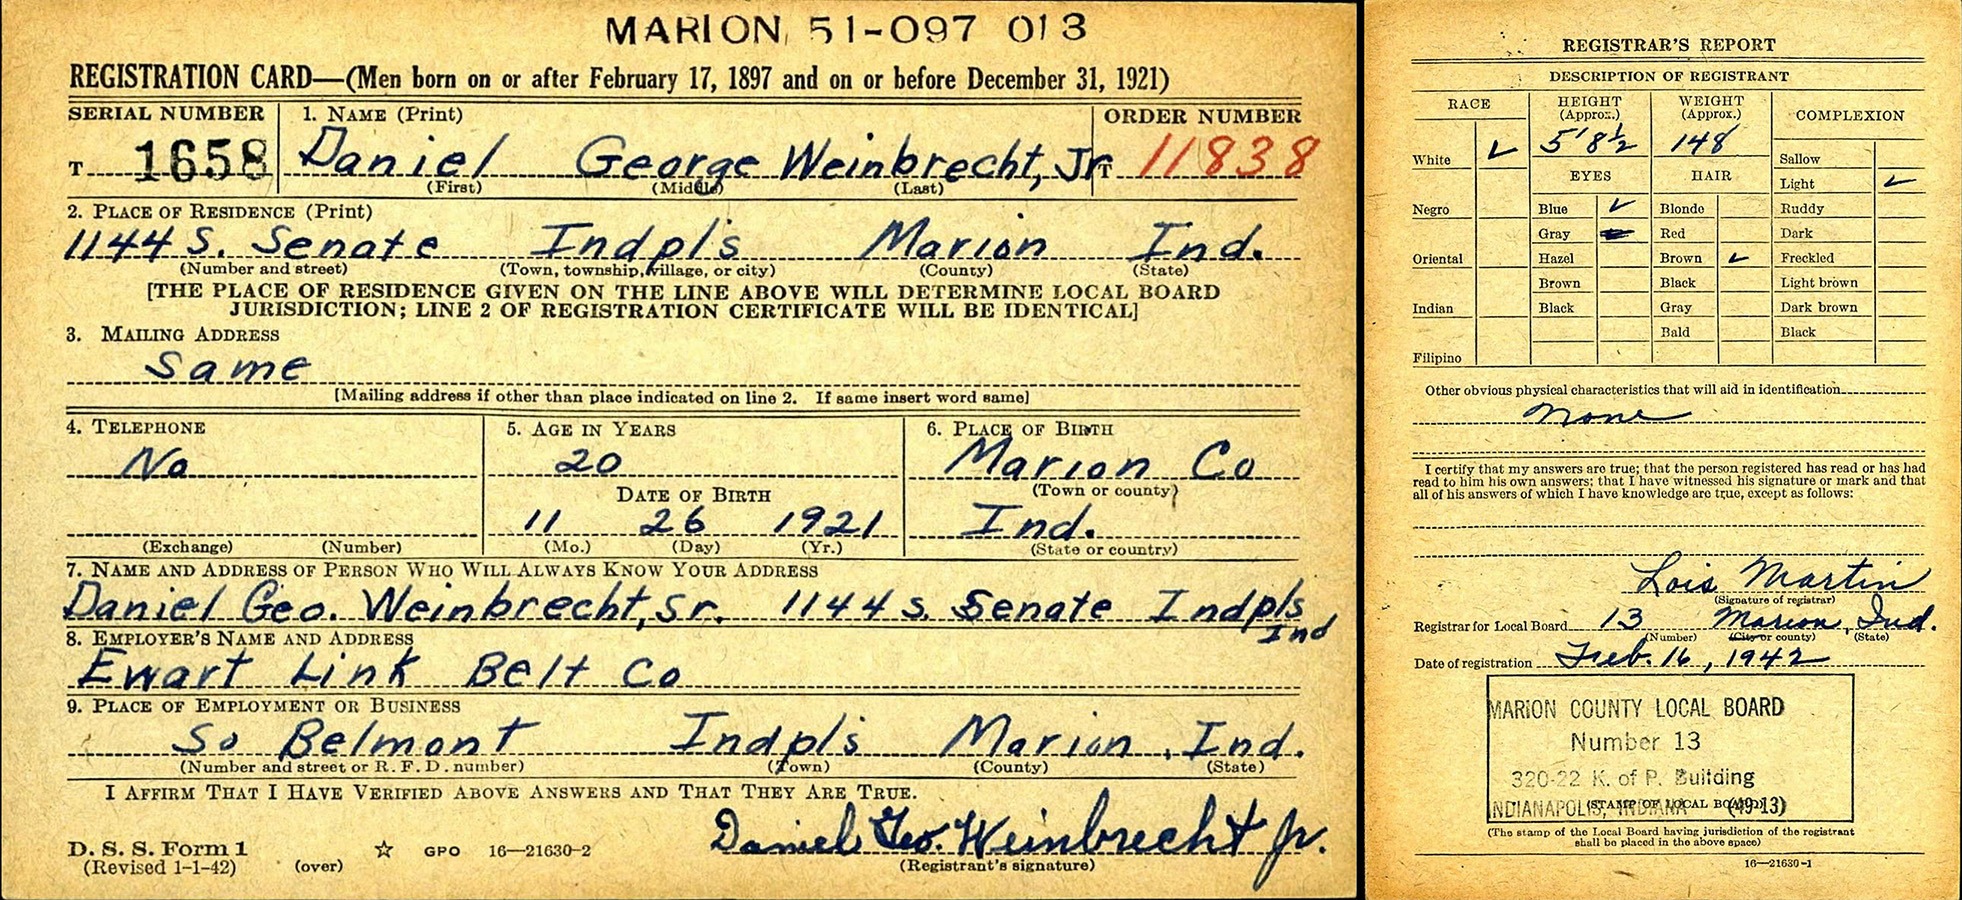 MARION 51-097 013
REGISTRATION CARD—(Men born on or after February 17, 1897 and on or before December 31, 1921)
SERIAL NUMBER 1. NAME (Print) ORDER NUMBER
T 1658 Daniel George Weinbrecht, Jr T 11838
(First) (Middle) (Last)
2. PLACE OF RESIDENCE (Print)
1144 S. Senate Indpls Marion Ind.
(Number and street) (Town, township, village, or city) (County) (State)
[THE PLACE OF RESIDENCE GIVEN ON THE LINE ABOVE WILL DETERMINE LOCAL BOARD
JURISDICTION; LINE 2 OF REGISTRATION CERTIFICATE WILL BE IDENTICAL]
3. MAILING ADDRESS
Same
[Mailing address if other than place indicated on line 2. If same insert word same]
4. TELEPHONE 5. AGE IN YEARS 6. PLACE OF BIRTH
No 20 Marion Co
DATE OF BIRTH (Town or county)
11 26 1921 Ind.
(Exchange) (Number) (Mo.) (Day) (Yr.) (State or country)
7. NAME AND ADDRESS OF PERSON WHO WILL ALWAYS KNOW YOUR ADDRESS
Daniel Geo. Weinbrecht, Sr. 1144 S. Senate Indpls
Ind
8. EMPLOYER'S NAME AND ADDRESS
Ewart Link Belt Co
9. PLACE OF EMPLOYMENT OR BUSINESS
So Belmont Indpls Marion, Ind.
(Number and street or R. F. D. number) (Town) (County) (State)
I AFFIRM THAT I HAVE VERIFIED ABOVE ANSWERS AND THAT THEY ARE TRUE.
Daniel Geo. Weinbrecht Jr.
D. S. S. Form 1 GPO 16—21630-2
(Revised 1-1-42) (over) (Registrant's signature)
REGISTRAR'S REPORT
DESCRIPTION OF REGISTRANT
RACE HEIGHT (Approx.) WEIGHT (Approx.) COMPLEXION
White 5' 8½ 148 Sallow
EYES HAIR Light
Negro Blue Blonde Ruddy
Gray Red Dark
Oriental Hazel Brown Freckled
Brown Black Light brown
Indian Black Gray Dark brown
Bald Black
Filipino
Other obvious physical characteristics that will aid in identification
None
I certify that my answers are true; that the person registered has read or has had
read to him his own answers; that I have witnessed his signature or mark and that
all of his answers of which I have knowledge are true, except as follows:
Lois Martin
(Signature of registrar)
Registrar for Local Board 13 Marion, Ind.
(Number) (City or county) (State)
Date of registration Feb. 16, 1942
MARION COUNTY LOCAL BOARD
Number 13
320-22 K. of P. Building
NDIANAPOLIS, INDIANA (49-13)
(STAMP OF LOCAL BOARD)
(The stamp of the Local Board having jurisdiction of the registrant
shall be placed in the above space)
16—21630-1